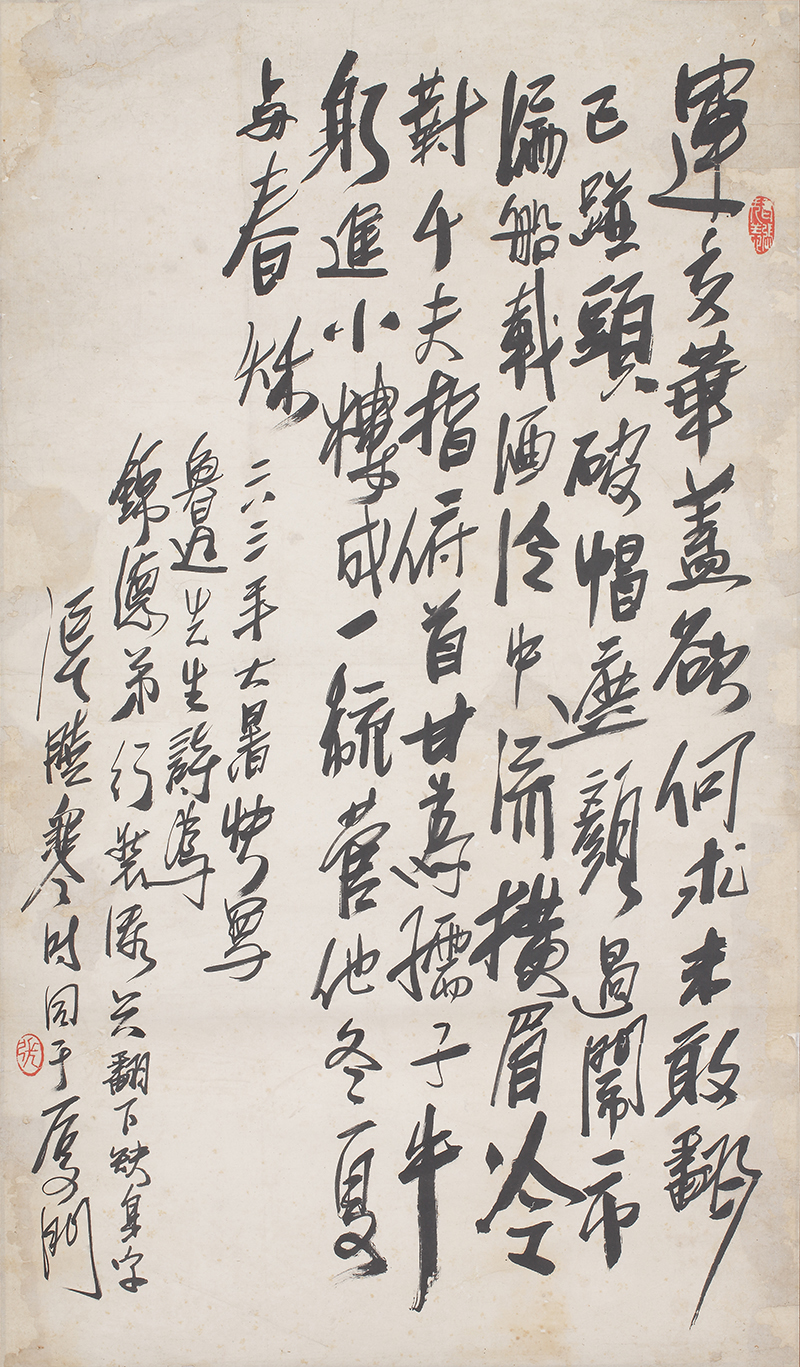 運交華蓋欲何求未敢翻
已踫頭破帽遮顏過鬧市
漏船載酒泛中流橫眉冷
對千夫指俯首甘為孺子牛
躲進小樓成一統管他冬夏
与春秋
六三年大暑寫
魯迅先生詩為
錦德弟行裝添翻下缺身字
張曉寒時同于廈門